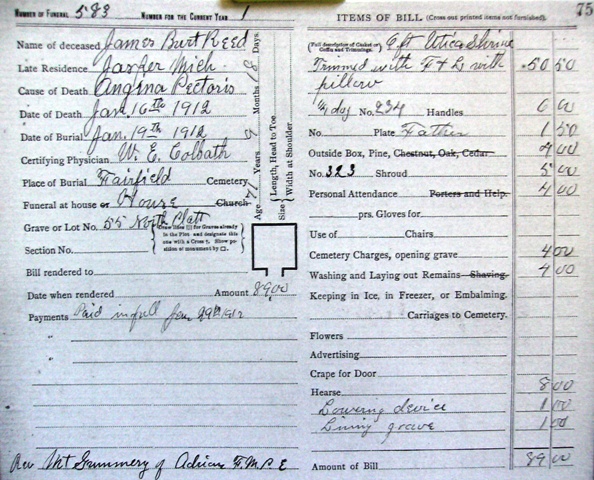 NUMBER OF FUNERAL 583 NUMBER FOR THE CURRENT YEAR 1
Name of deceased James Burt Reed
Late Residence Jasper Mich
Cause of Death Angina Pectoris
Date of Death Jan. 16th 1912
Date of Burial Jan. 19th 1912
Certifying Physician W. E. Colbath
Place of Burial Fairfield Cemetery
Funeral at house or House Church
Grave or Lot No. 55 North Platt
Section No.
(Draw lines for Graves already in the Plot and designate this one with a Cross. Show position of monument by .)
Bill rendered to
Date when rendered Amount 89.00
Payments Paid in full Jan 29th 1912
Rev Mt Summery of Adrian F.M.P.E
Age Years Months Days.
Size Length, Head to Toe.
Width at Shoulder.
ITEMS OF BILL (Cross out printed items not furnished). 75
(Full description of Casket or Coffin and Trimmings. 6 ft Utica Shrine
Trimmed with F & L with 50 50
pillow
No. 234 Handles 6 00
No. Plate Father 1 50
Outside Box, Pine, Chestnut, Oak, Cedar
No. 323 Shroud 5 00
Personal Attendance Porters and Help. 4 00
prs. Gloves for
Use of Chairs
Cemetery Charges, opening grave 4 00
Washing and Laying out Remains Shaving. 4 00
Keeping in Ice, in Freezer, or Embalming.
Carriages to Cemetery.
Flowers
Advertising
Crape for Door
Hearse 8 00
Lowering device 1 00
Lining grave 1 00
Amount of Bill 89 00